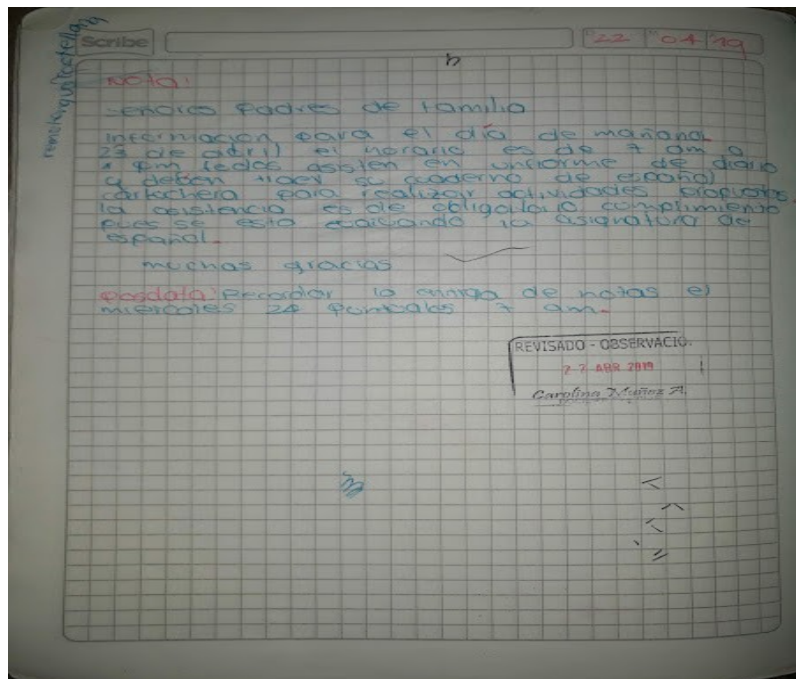 Scribe 22 04 19
Nota:
Señores Padres de familia
información para el día de mañana
23 de abril el horario es de 7 am a
pm todos asisten en uniforme de diario
y deben traer su cuaderno de español
cartuchera para realizar actividades propuestas.
la asistencia es de obligatorio cumplimiento
pues se esta evaluando la asignatura de
español.
muchas gracias
posdata: Recordar la entrega de notas el
miercoles 24 puntuales 7 am.
REVISADO - OBSERVACIO
22 ABR 2019
Carolina Muñoz A.